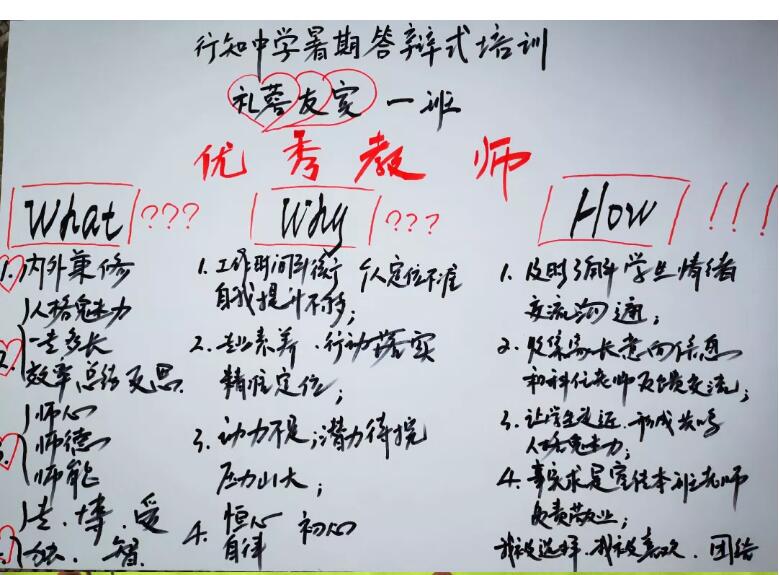 行知中学暑期答辩式培训
礼蓉友宾 一班
优秀教师
What ???
1.内外兼修
人格魅力
2.一专多长
效率总结反思
3.师心
师德
师能
专.博.爱
智
Why ???
1.工作时间 个人定位不准
自我提升不够;
2.专业素养.行动落实
精准定位;
3.动力不足;潜力待挖
压力山大;
4.恒心 初心
自律
How !!!
1.及时了解学生情绪
交流沟通;
2.收集家长意向信息
和科任老师反馈交流;
3.让学生走近.形成共鸣
人格魅力;
4.事实求是宣传本班老师
负责敬业;
我被选择.我被喜欢.团结